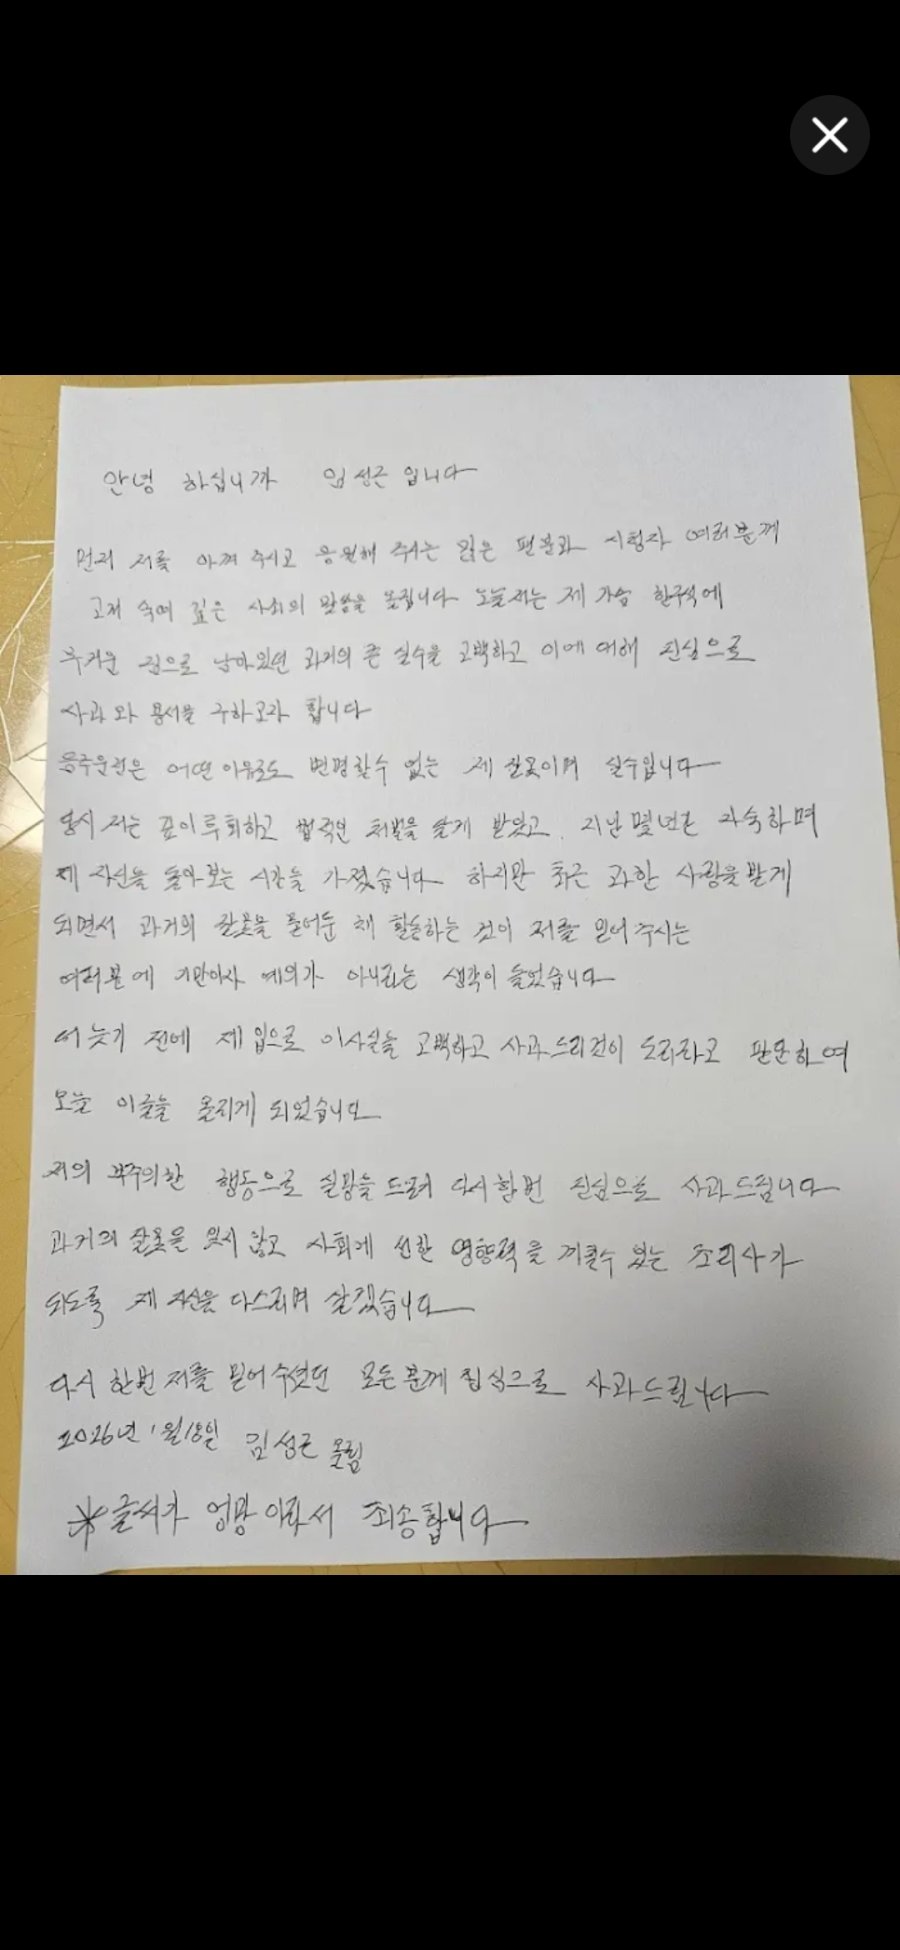 안녕 하십니까 임성근 입니다
먼저 저를 아껴 주시고 응원해 주시는 많은 팬분과 시청자 여러분께
고개 숙여 깊은 사죄의 말씀을 올립니다 오늘 저는 제 가슴 한구석에
무거운 짐으로 남아있던 과거의 큰 실수을 고백하고 이에 대해 진심으로
사과와 용서를 구하고자 합니다
음주운전은 어떤 이유로도 변명할수 없는 제 잘못이며 실수입니다
당시 저는 깊이 후회하고 법적인 처벌을 달게 받았고 지난 몇년간 자숙하며
제 자신을 돌아보는 시간을 가졌습니다 하지만 최근 과한 사랑을 받게
되면서 과거의 잘못을 묻어둔 채 활동하는 것이 저를 믿어 주시는
여러분에 기만이자 예의가 아니라는 생각이 들었습니다
더 늦기 전에 제 입으로 이사실을 고백하고 사과드리것이 도리라고 판단하여
오늘 이글을 올리게 되었습니다
저의 부주의한 행동으로 실망을 드려 다시한번 진심으로 사과드립니다
과거의 잘못을 잊지 않고 사회에 선한 영향력을 끼칠수 있는 조리사가
되도록 제 자신을 다스리며 살겠습니다
다시 한번 저를 믿어주셨던 모든분께 진심으로 사과드립니다
2026년 1월18일 임성근 올림
※글씨가 엉망이라서 죄송합니다